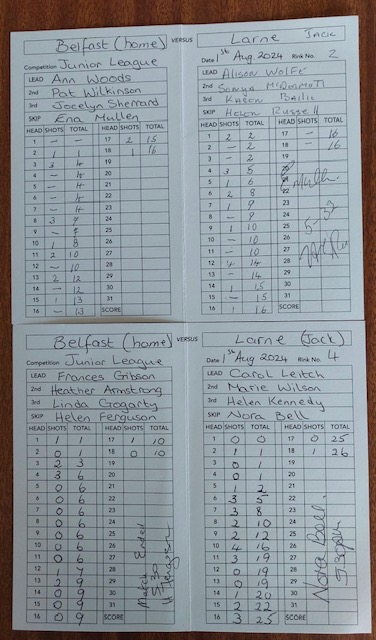 Belfast (home) VERSUS Larne JACK
Competition Junior League Date 1st Aug 2024 Rink No. 2
LEAD Ann Woods LEAD Alison Wolfe
2nd Pat Wilkinson 2nd Sonya McDermott
3rd Jocelyn Sherrard 3rd Karen Bailie
SKIP Ena Mullen SKIP Helen Russell
HEAD SHOTS TOTAL HEAD SHOTS TOTAL HEAD SHOTS TOTAL HEAD SHOTS TOTAL
1 - - 17 2 15 1 2 2 17 - 16
2 1 1 18 1 16 2 - 2 18 - 16
3 3 4 19 3 - 2 19
4 - 4 20 4 3 5 20
5 - 4 21 5 1 6 21
6 - 4 22 6 2 8 22
7 - 4 23 7 1 9 23
8 3 7 24 8 - 9 24
9 - 7 25 9 1 10 25 5-32
10 1 8 26 10 - 10 26
11 2 10 27 11 - 10 27
12 - 10 28 12 4 14 28
13 2 12 29 13 - 14 29
14 - 12 30 14 1 15 30
15 1 13 31 15 - 15 31
16 - 13 SCORE 16 1 16 SCORE
Belfast (home) VERSUS Larne (Jack)
Competition Junior League Date 1st Aug 2024 Rink No. 4
LEAD Frances Gibson LEAD Carol Leitch
2nd Heather Armstrong 2nd Marie Wilson
3rd Linda Gogarty 3rd Helen Kennedy
SKIP Helen Ferguson SKIP Nora Bell
HEAD SHOTS TOTAL HEAD SHOTS TOTAL HEAD SHOTS TOTAL HEAD SHOTS TOTAL
1 1 1 17 1 10 1 0 0 17 0 25
2 0 1 18 0 10 2 1 1 18 1 26
3 2 3 19 3 0 1 19
4 3 6 20 4 0 1 20
5 0 6 21 5 1 2 21
6 0 6 22 6 3 5 22
7 0 6 23 7 3 8 23
8 0 6 24 8 2 10 24
9 0 6 25 9 2 12 25
10 0 6 26 10 4 16 26
11 0 6 27 11 3 19 27
12 1 7 28 12 0 19 28
13 2 9 29 13 0 19 29
14 0 9 30 14 1 20 30
15 0 9 31 15 2 22 31
16 0 9 SCORE 16 3 25 SCORE
Match Ended
5.30
H Ferguson
Nora Bell
5.30pm